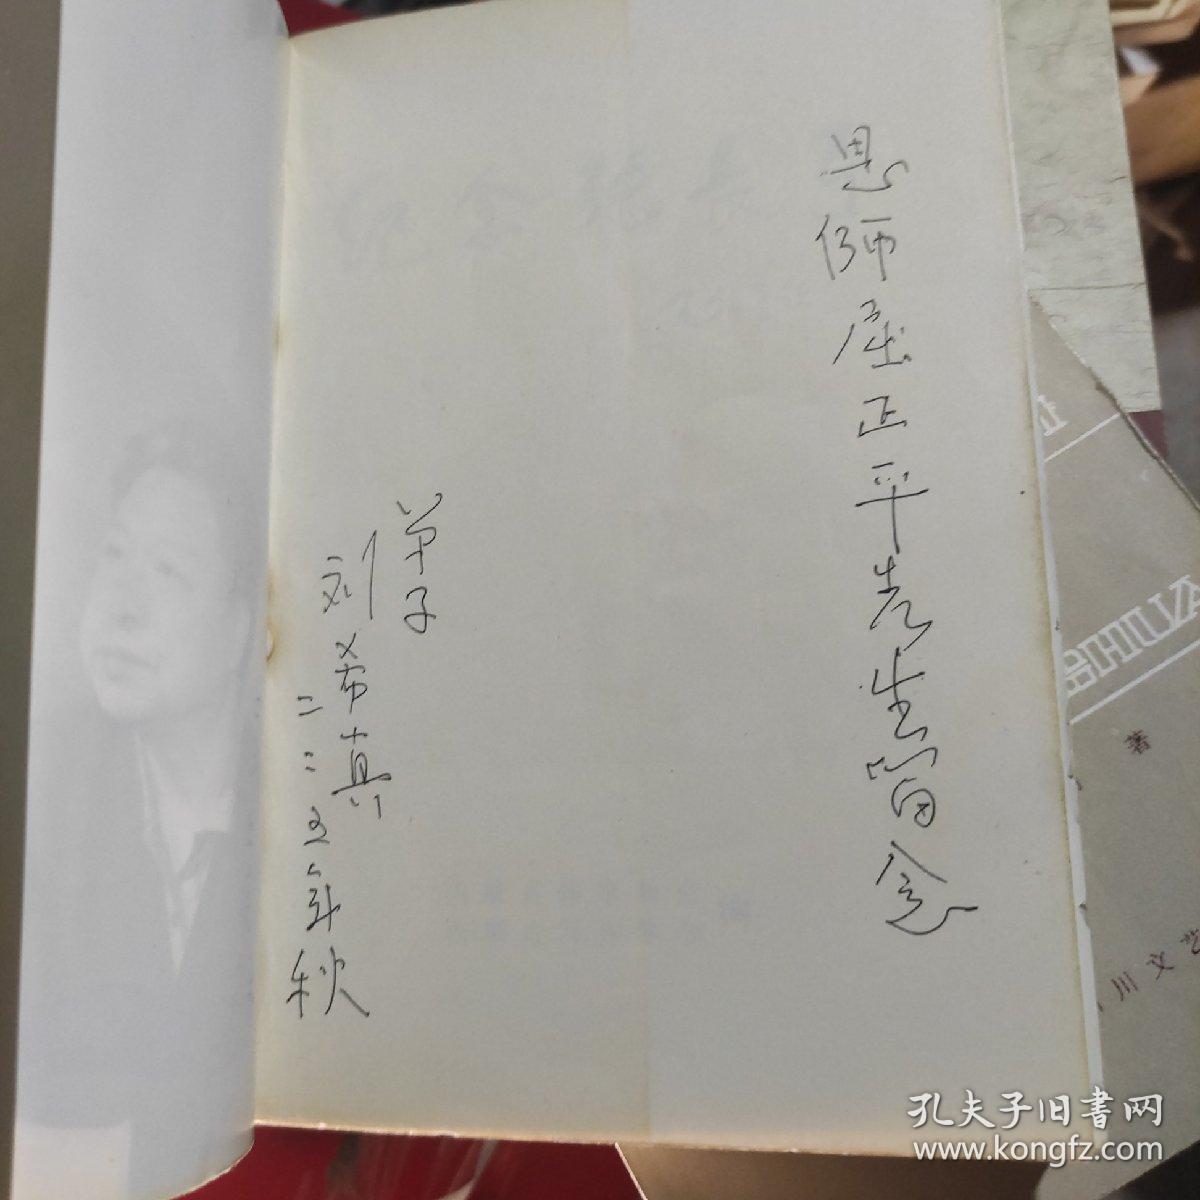 恩师屈正平先生留念
弟子
刘希真
二〇〇五年秋
著
川文艺
孔夫子旧书网
www.kongfz.com